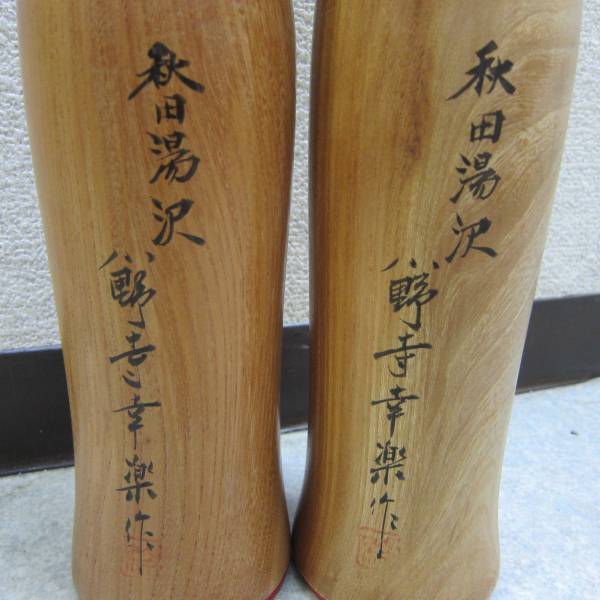 秋田湯沢
小野寺幸楽作
秋田湯沢
小野寺幸楽作